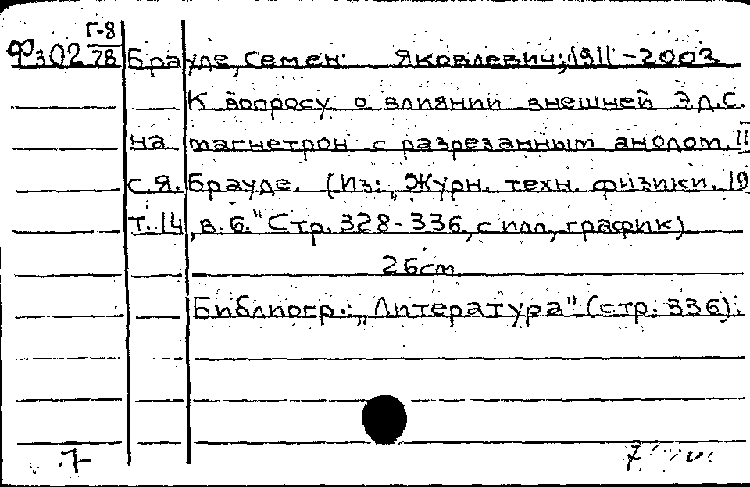 Г-8
Ф302 78 Брауде, Семен Яковлевич, 1911-2003
К вопросу о влиянии внешней э.д.с.
на магнетрон с разрезанным анодом. II
с.я. Брауде. (Из: „Журн. техн. физики. 19
т. 14, в. 6." Стр. 328-336, с илл, график)
26cm
Библиогр.: „Литература" (стр. 336).